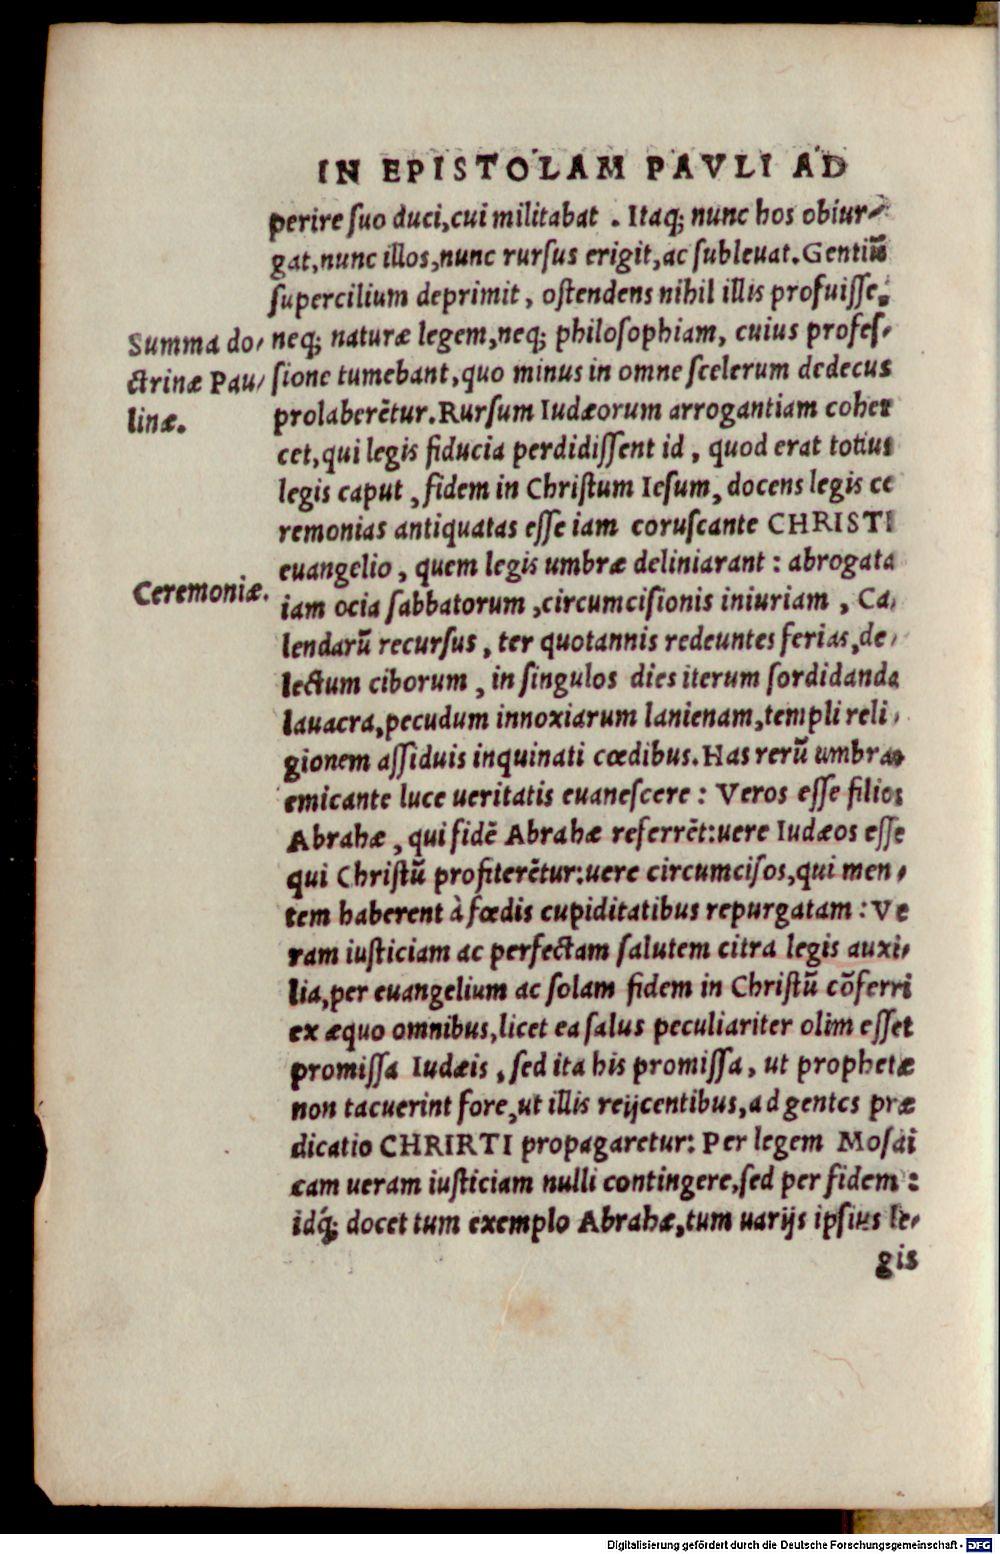 IN EPISTOLAM PAVLI AD
perire ſuo duci,cui militabat . Itaq; nunc hos obiur-
gat,nunc illos,nunc rurſus erigit,ac ſubleuat.Gentiũ
ſupercilium deprimit, oſtendens nihil illis profuiſſe,
neq; naturæ legem,neq; philoſophiam, cuius profeſ-
ſione tumebant,quo minus in omne ſcelerum dedecus
prolaberẽtur.Rurſum Iudæorum arrogantiam coher
cet,qui legis fiducia perdidiſſent id, quod erat totius
legis caput, fidem in Chriſtum Ieſum, docens legis ce
remonias antiquatas eſſe iam coruſcante CHRISTI
euangelio, quem legis umbræ deliniarant: abrogata
iam ocia ſabbatorum,circumciſionis iniuriam, Ca-
lendarũ recurſus, ter quotannis redeuntes ferias,de-
lectum ciborum, in ſingulos dies iterum ſordidanda
lauacra,pecudum innoxiarum lanienam,templi reli-
gionem aſſiduis inquinati cœdibus.Has rerũ umbras
emicante luce ueritatis euaneſcere: Veros eſſe filios
Abrahæ, qui fidẽ Abrahæ referrẽt:uere Iudæos eſſe
qui Chriſtũ profiterẽtur:uere circumciſos,qui men-
tem haberent à fœdis cupiditatibus repurgatam: Ve
ram iuſticiam ac perfectam ſalutem citra legis auxi-
lia,per euangelium ac ſolam fidem in Chriſtũ cõferri
ex æquo omnibus,licet ea ſalus peculiariter olim eſſet
promiſſa Iudæis, ſed ita his promiſſa, ut prophetæ
non tacuerint fore,ut illis reijcentibus,ad gentes præ
dicatio CHRIRTI propagaretur: Per legem Moſai
cam ueram iuſticiam nulli contingere,ſed per fidem:
idq́; docet tum exemplo Abrahæ,tum uarijs ipſius le-
gis
Summa do-
ctrinæ Pau-
linæ.
Ceremoniæ.
Digitalisierung gefördert durch die Deutsche Forschungsgemeinschaft - DFG